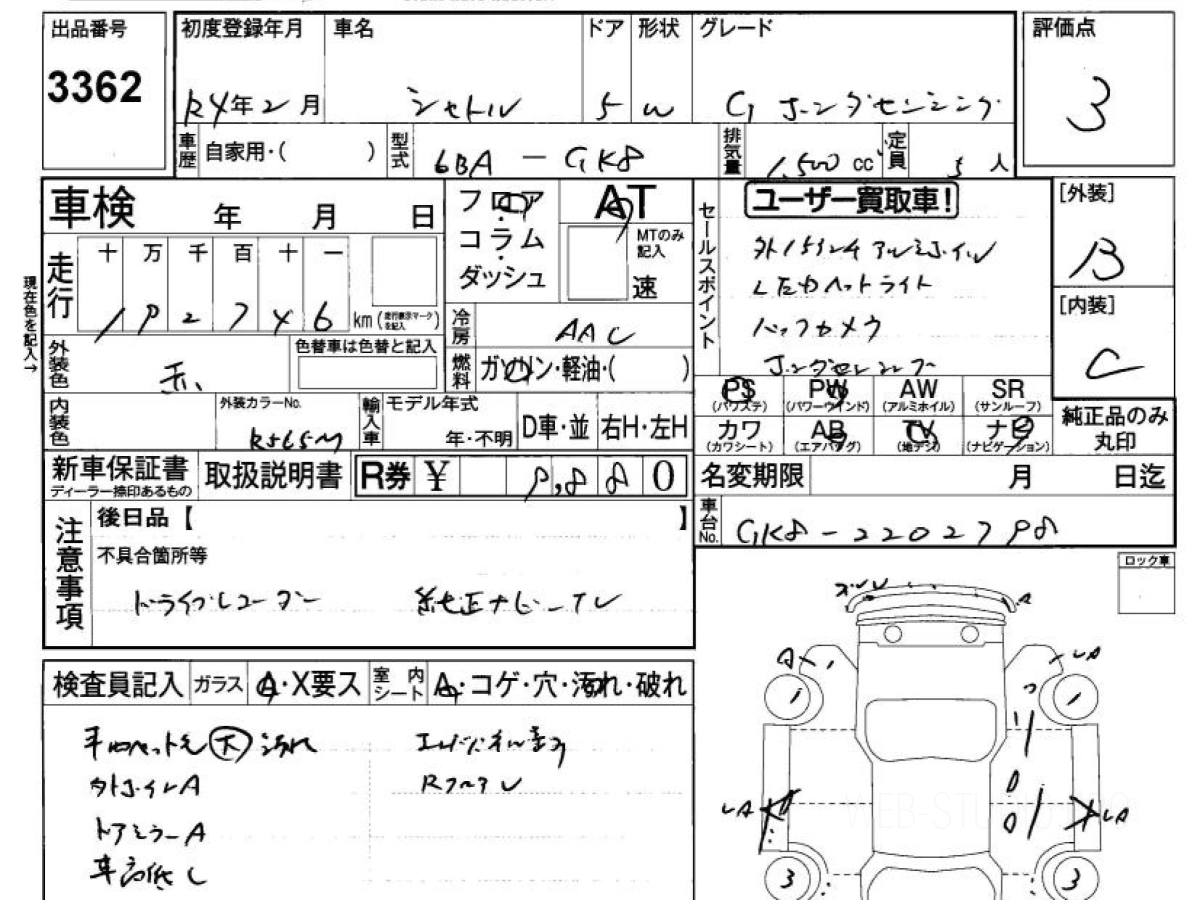 出品番号
3362
初度登録年月
R4年2月
車名
シャトル
ドア
5
形状
W
グレード
G ホンダセンシング
評価点
3
車歴
自家用・( )
型式
6BA - GK8
排気量
1,500 cc
定員
5人
車検 年 月 日
フロア・コラム・ダッシュ
AT
MTのみ記入
速
セールスポイント
ユーザー買取車!
外15インチアルミホイル
LEDヘットライト
バックカメラ
[外装]
B
[内装]
C
現在色を記入→
走行
十 万 千 百 十 一
km (走行表示マークを記入)
冷房
AAC
燃料
ガソリン・軽油・( )
外装色
赤
色替車は色替と記入
PS (パワステ)
PW (パワーウインド)
AW (アルミホイル)
SR (サンルーフ)
カワ (カワシート)
AB (エアバッグ)
TV (地デジ)
ナビ (ナビゲーション)
純正品のみ丸印
内装色
外装カラーNo.
R565M
輸入車
モデル年式
年・不明
D車・並
右H・左H
新車保証書
ディーラー捺印あるもの
取扱説明書
R券
¥
0
名変期限 月 日迄
車台No.
注意事項
後日品【 】
不具合箇所等
ドライブレコーダー 純正ナビ-TV
ロック車
検査員記入
ガラス
A・X要ス
室内シート
A・コゲ・穴・汚れ・破れ
外ホイルA
ドアミラーA
車高低し
A
UA
1
1
UA
UA
3
3
WEB-ST